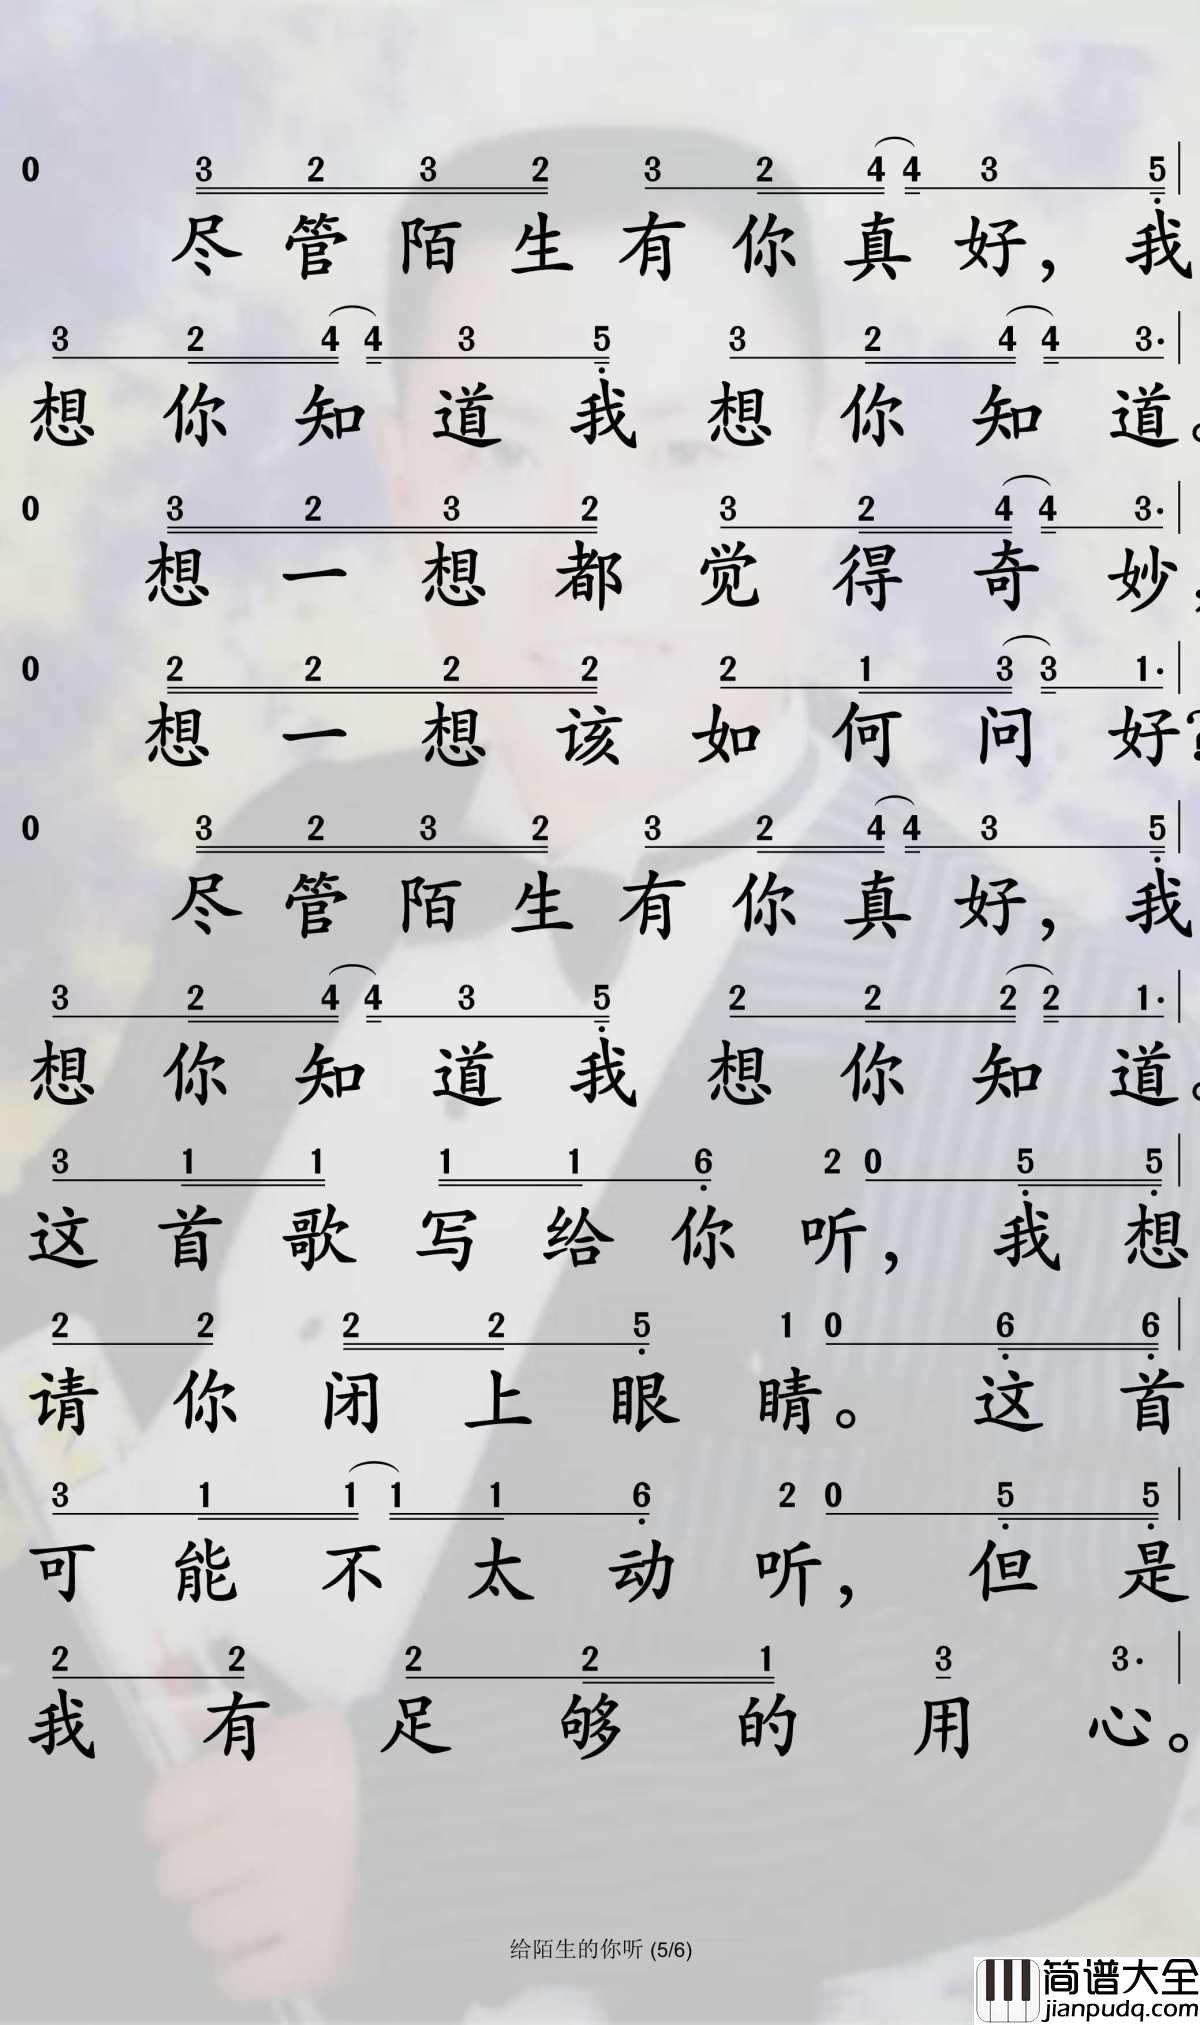 0 3 2 3 2 3 2 4 4 3 5
尽管陌生有你真好，我
3 2 4 4 3 5 3 2 4 4 3·
想你知道我想你知道。
0 3 2 3 2 3 2 4 4 3·
想一想都觉得奇妙，
0 2 2 2 2 2 1 3 3 1·
想一想该如何问好？
0 3 2 3 2 3 2 4 4 3 5
尽管陌生有你真好，我
3 2 4 4 3 5 2 2 2 2 1·
想你知道我想你知道。
3 1 1 1 1 6 2 0 5 5
这首歌写给你听，我想
2 2 2 2 5 1 0 6 6
请你闭上眼睛。这首
3 1 1 1 1 6 2 0 5 5
可能不太动听，但是
2 2 2 2 1 3 3·
我有足够的用心。
给陌生的你听 (5/6)
简谱大全
jianpudq.com